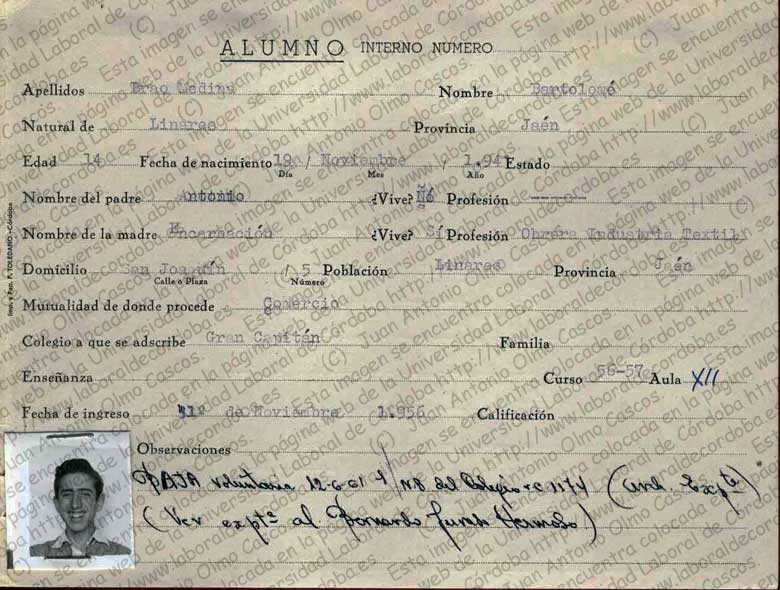 ALUMNO INTERNO NUMERO
Apellidos Medina Nombre Bartolomé
Natural de Linares Provincia Jaén
Edad 14 Fecha de nacimiento 19 / Noviembre / 1.94 Estado
Día Mes Año
Nombre del padre Antonio ¿Vive? Nó Profesión -----
Nombre de la madre Encarnación ¿Vive? Sí Profesión Obrera Industria Textil
Domicilio San Joaquín / 5 Población Linares Provincia Jaén
Calle o Plaza Número
Mutualidad de donde procede Comercio
Colegio a que se adscribe Gran Capitán Familia
Enseñanza Curso 56-57 Aula XII
Fecha de ingreso de Noviembre 1.956 Calificación
Observaciones
BAJA voluntaria 12-6-61 del Colegio 1174
(Ver expte al Hermoso)
Imp. y Pap. F. TOLEDANO.-Córdoba
Esta imagen se encuentra colocada en la página web de la Universidad Laboral de Córdoba http://www.laboraldecordoba.es (C) Juan Antonio Olmo Cascos.